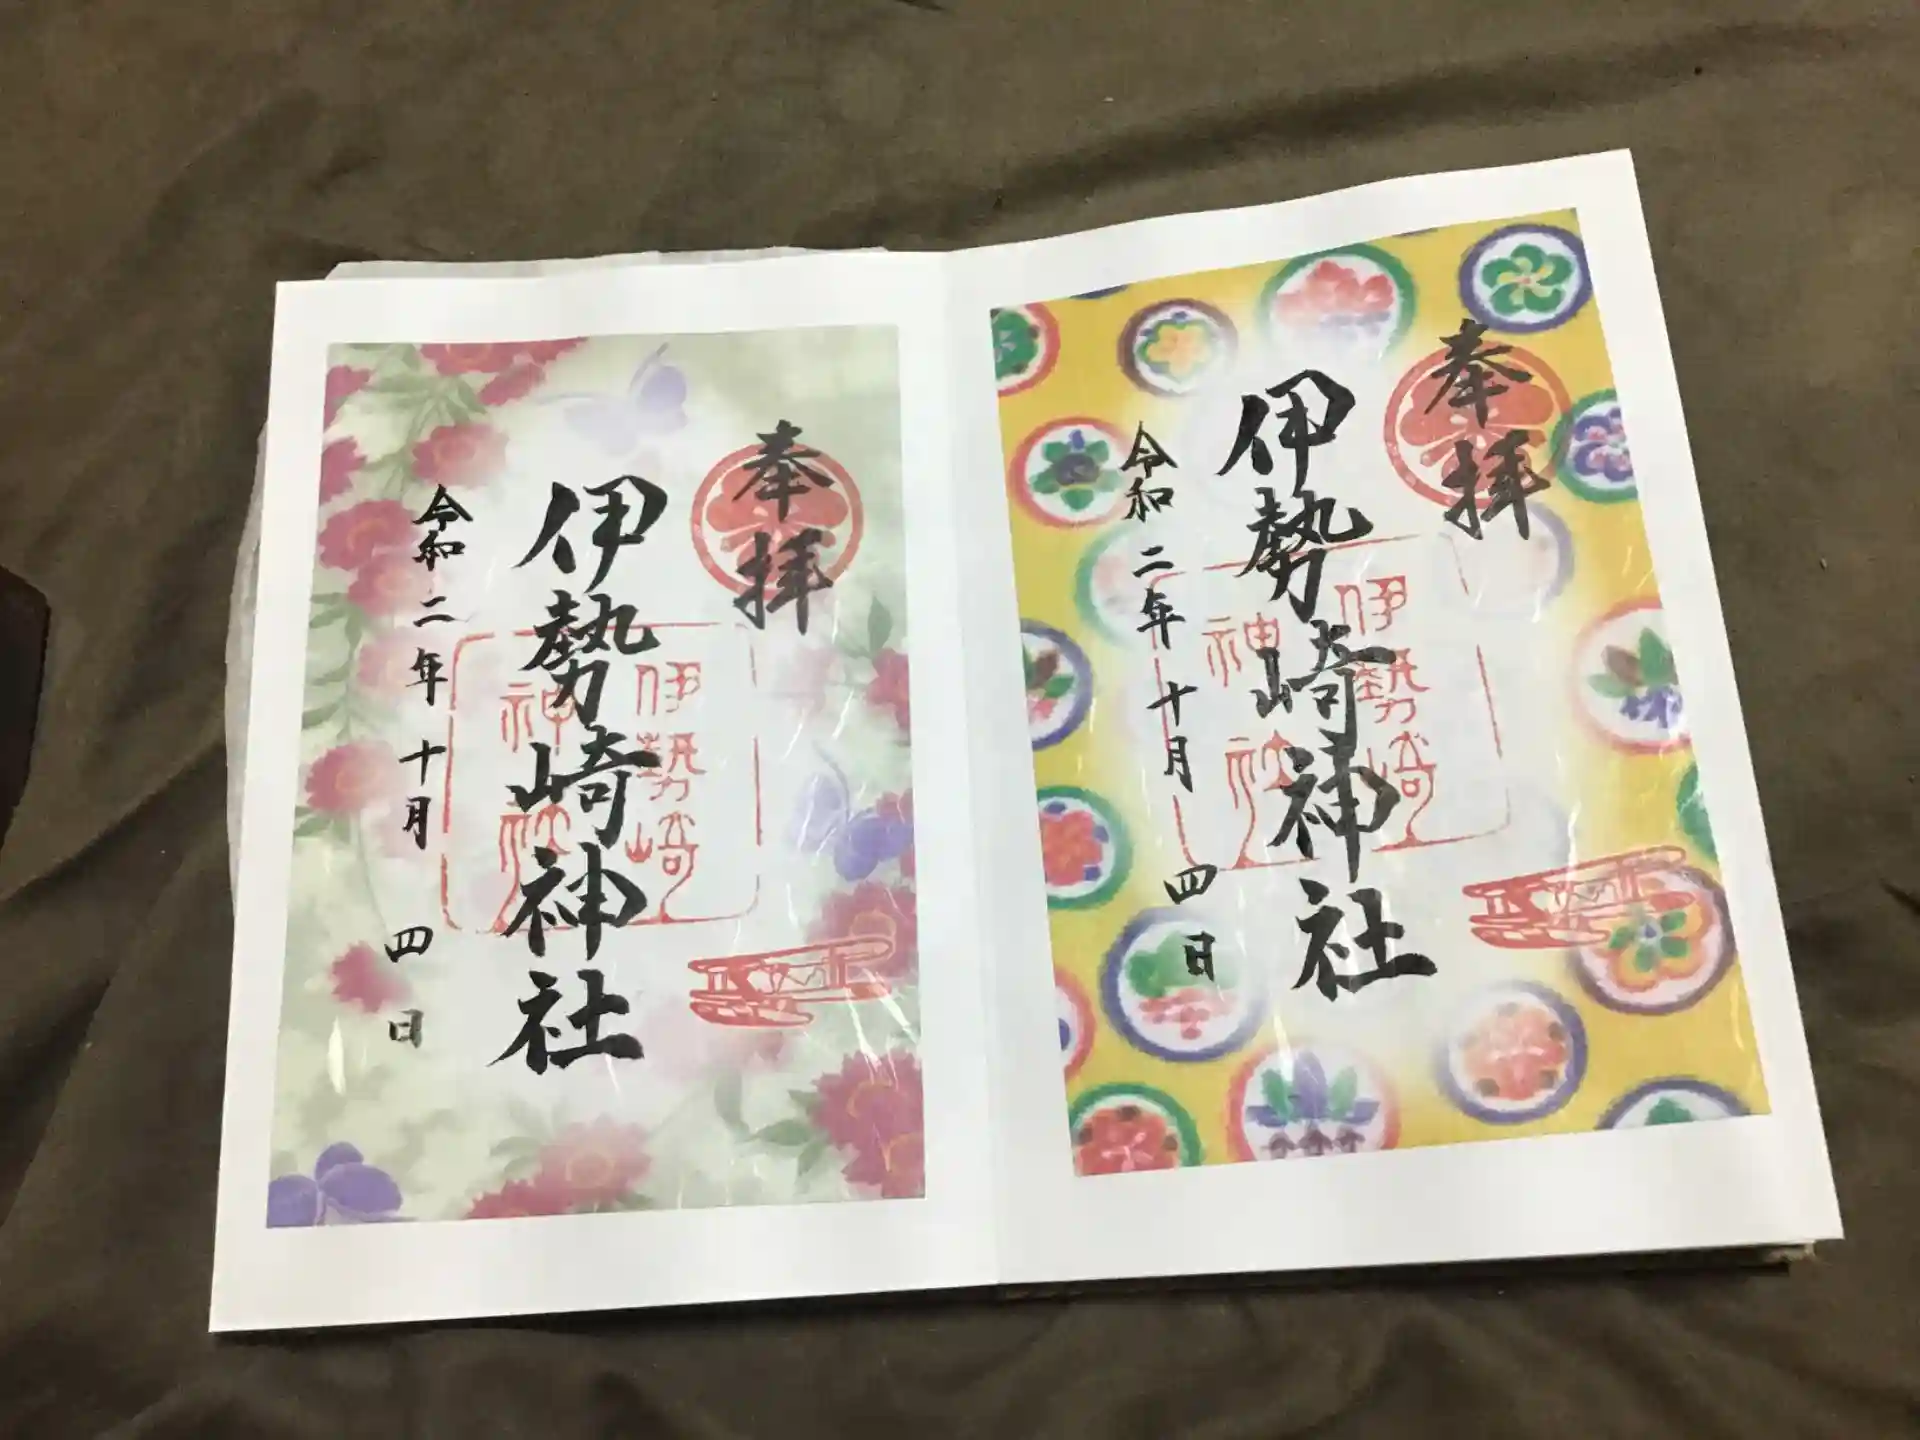 奉拝
伊勢崎神社
令和二年十月四日
伊勢崎
神社
奉拝
伊勢崎神社
令和二年十月四日
伊勢崎
神社